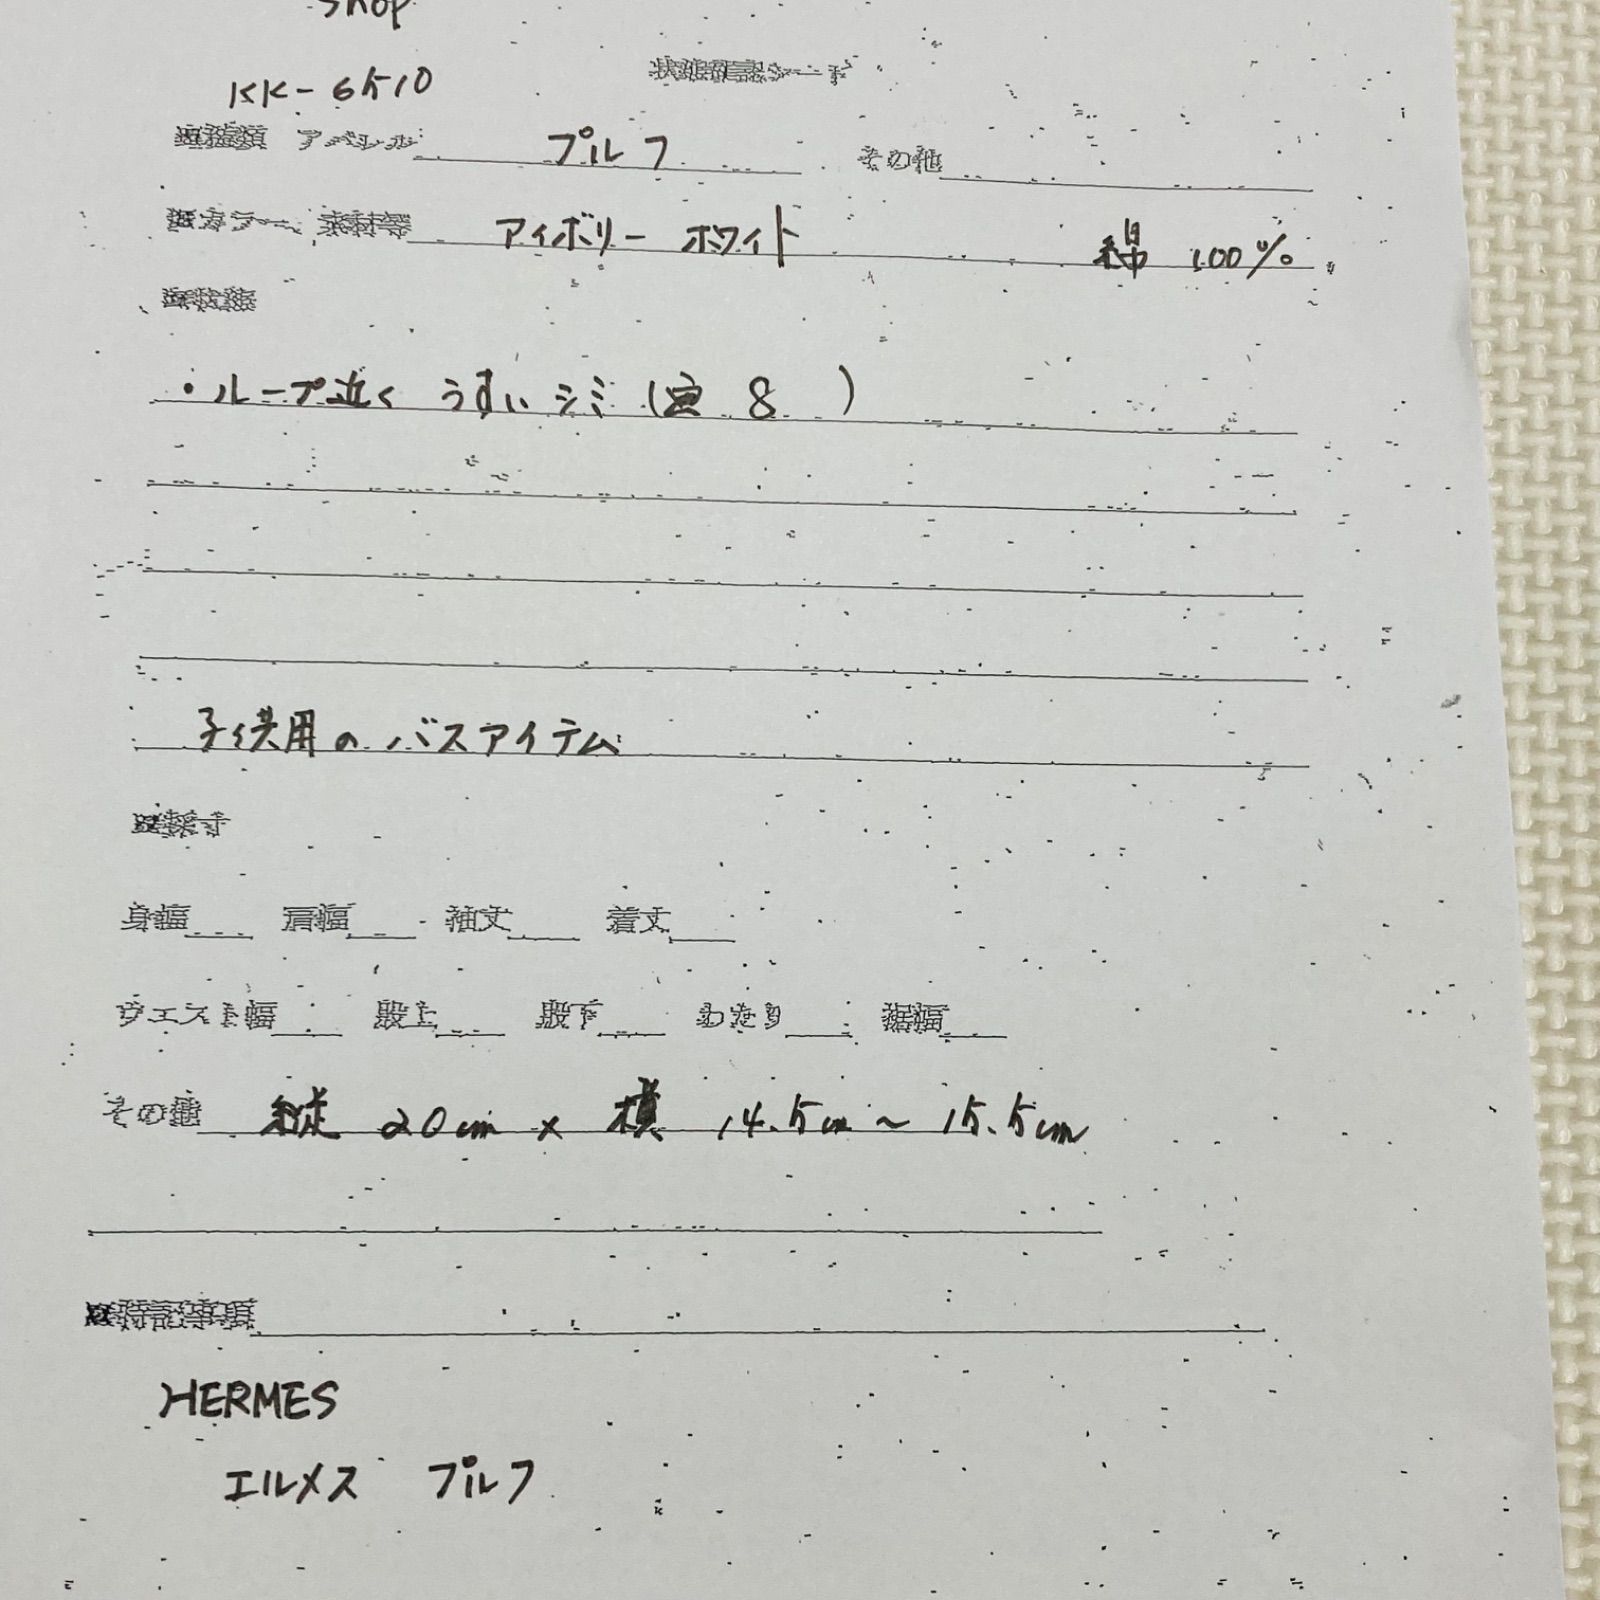 shop
KK-6510
状態確認シート
■種類 アパレル プルフ その他
■カラー、素材等 アイボリー ホワイト 綿 100%
■状態
・ループ近く うすい シミ (写 8 )
子供用の バスアイテム
■採寸
身幅 肩幅 袖丈 着丈
ウエスト幅 股上 股下 わたり 裾幅
その他 縦 20cm × 横 14.5cm ~ 15.5cm
■特記事項
HERMES
エルメス プルフ